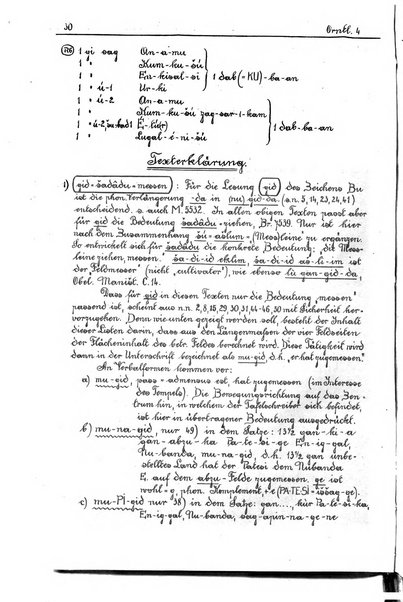 30 Orntl. 4
1 gi sag An-a-mu
1 " Kum-ku-šú
1 " En-kisal-si } 1 dab (-KU)-ba-an
1 " ú-1 Ur-ki
1 " ú-2 An-a-mu
1 " Kum-ku-šú zag-sar-1-kam
1 " É-
1 " Lugal-é-ni-šú } 1 dab-ba-an
Texterklärung.
1) gid = šadâdu = messen : Für die Lesung gid des Zeichens Bu
ist die phon. Verlängerung -da in (nu) gid-da. (s. n. 5, 14, 23, 24, 41)
entscheidend. s. auch M. 5532. In allen obigen Texten passt aber
für gid die Bedeutung šadâdu = ziehen, Br. 7539. Nur ist hier
nach dem Zusammenhang šú = ašlum = (Mess)leine zu ergänzen.
So entwickelt sich für šadâdu die konkrete Bedeutung: die Mess-
leine ziehen, messen. ša-di-id eklim, ša-di-id aš-li-im ist
der Feldmesser (nicht 'cultivator'), wie ebenso lù gan-gid-da,
Obel. Maništ. C. 14.
Dass für gid in diesen Texten nur die Bedeutung „messen"
passend ist, scheint aus n. 2, 8, 15, 29, 30, 31, 44-46, 50 mit Sicherheit her-
vorzugehen. Denn wie unten gezeigt werden soll, besteht der Inhalt
dieser Listen darin, dass aus den Längenmaßen der vier Feldseiten
der Flächeninhalt des betr. Feldes berechnet wird. Diese Tätigkeit wird
dann in der Unterschrift bezeichnet als mu-gid, d.h. „er hat zugemessen."
In Verbalformen kommen vor:
a) mu-gid, pass = admensus est, hat zugemessen (im Interesse
des Tempels). Die Bewegungsrichtung auf das Zen-
trum hin, in welchem der Tafelschreiber sich befindet,
ist hier in übertragener Bedeutung ausgedrückt.
b) mu-na-gid, nur 49) in dem Satze: 13½ gan-ki-a
gan-abzu-ka Pa-te-si-ge En-ig-gal,
Nu-banda, mu-na-gid, d.h. 13½ gan unbe-
stelltes Land hat der Patesi dem Nubanda
E. auf dem abzu-Felde zugemessen. ge ist
wohl = g, phon. Komplement, + e (PA-TE-SI = iššag-ge).
c) mu-Pi-gid nur 38) in dem Satze: gan...., kúr Pa-te-si-ka,
En-ig-gal, Nu-banda, sag-apin-na-ge-ne